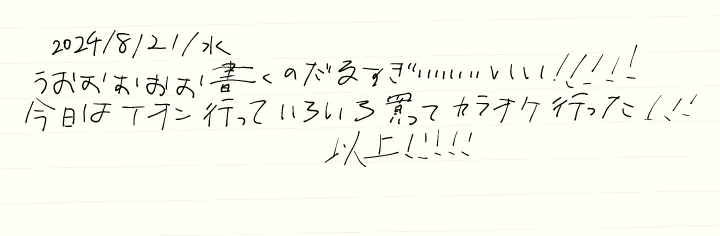 2024/8/21/水
うおおおおお書くのだるすぎ''''''''''いいい!!!!!
今日はイオン行っていろいろ買ってカラオケ行った!!!
以上!!!!!